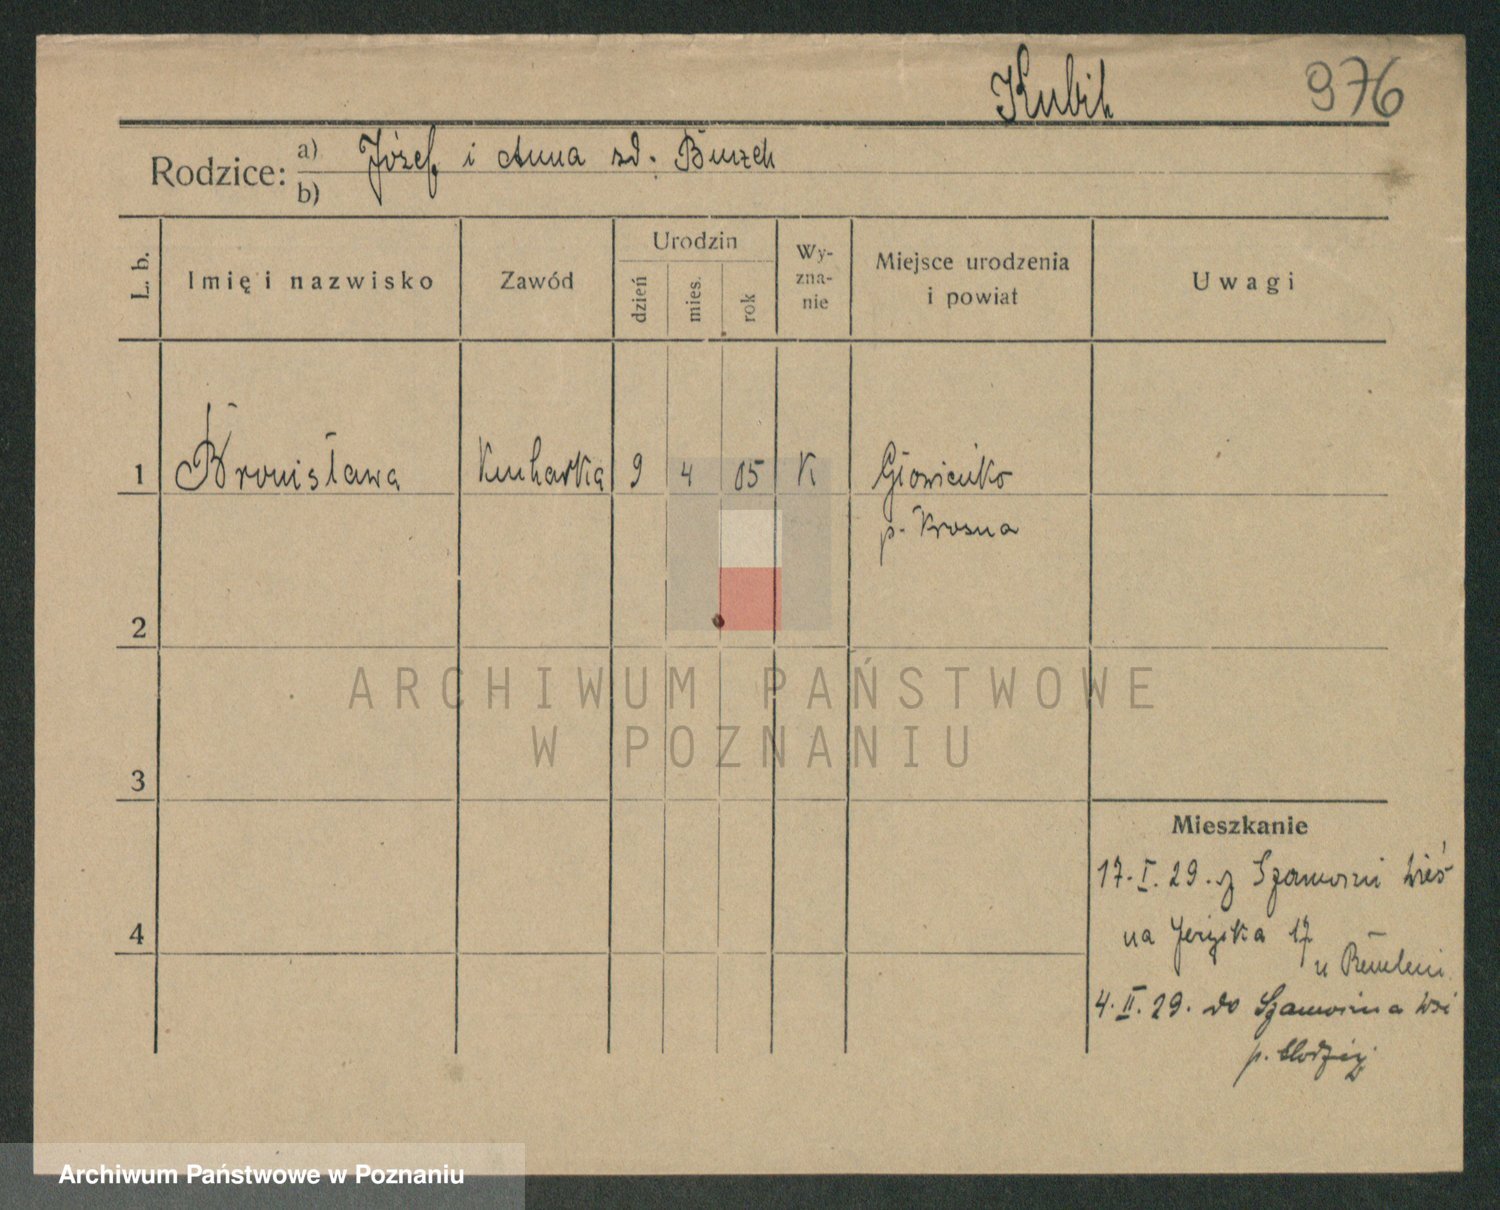 Kubik 976
Rodzice: a) Józef i Anna zd. Burzek
b)
L. b. Imię i nazwisko Zawód Urodzin dzień mies. rok Wy-zna-nie Miejsce urodzenia i powiat Uwagi
1 Bronisława Kucharka 9 4 05 K Głowienko
p. Krosna
2
ARCHIWUM PAŃSTWOWE
W POZNANIU
3
Mieszkanie
17. I. 29. z Szamocin Wieś
na Jeżycka 17
4
u
4. II. 29. do Szamocina Wsi
p. Chodzież
Archiwum Państwowe w Poznaniu